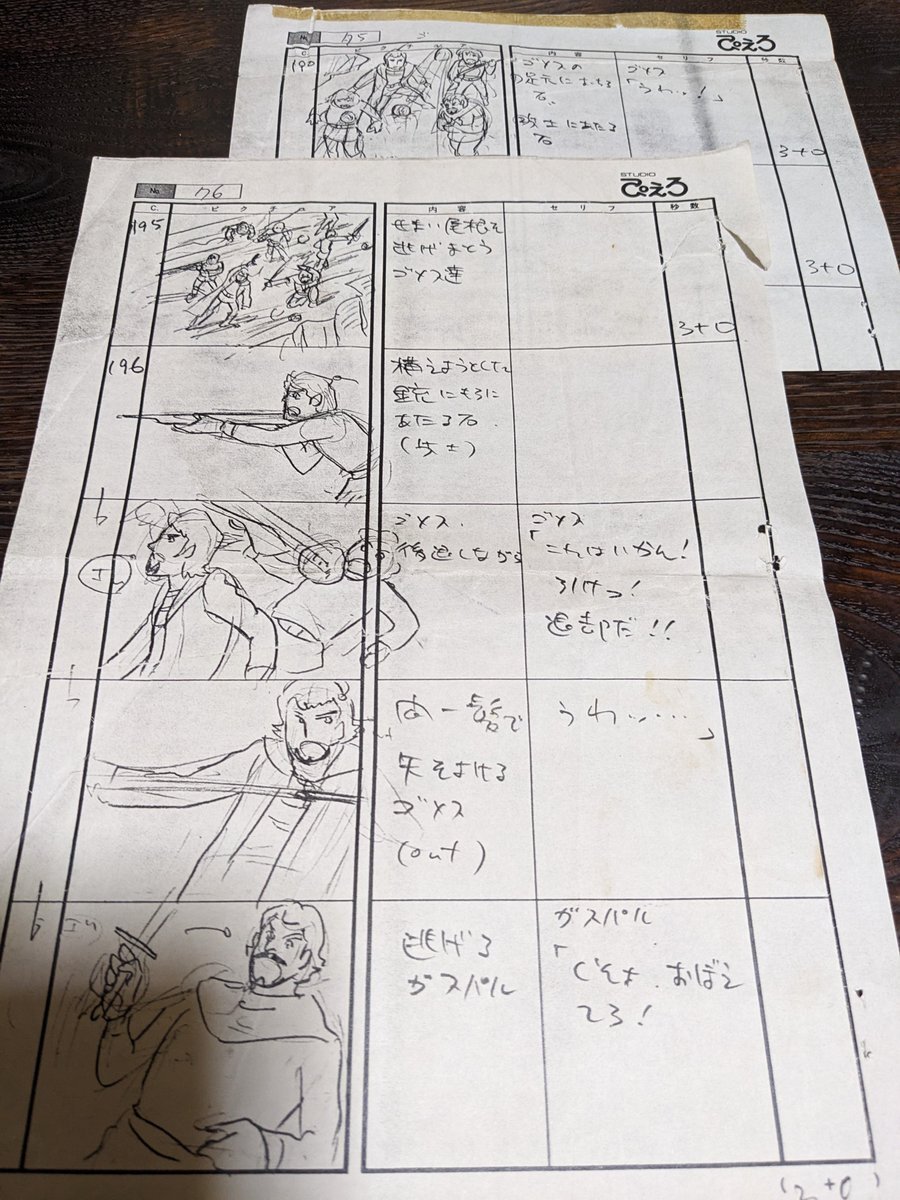 No. 75
STUDIO
ぴえろ
C. ピクチュア 内容 セリフ 秒数
190
ゴメスの
足元におちる
石、
にあたる
石
ゴメス
「うわッ!」
3+0
3+0
No. 76
STUDIO
ぴえろ
C. ピクチュア 内容 セリフ 秒数
195
せまい尾根を
逃げまどう
ゴメス達
3+0
196
構えようとして
銃にもろに
あたる石.
ゴメス.
後退しながら
ゴメス
「これはいかん!
引けっ!
退却だ!!
間一髪で
矢をよける
ゴメス
(out)
うわッ……」
逃げる
ガスパル
ガスパル
「くそォ.おぼえ
てろ!